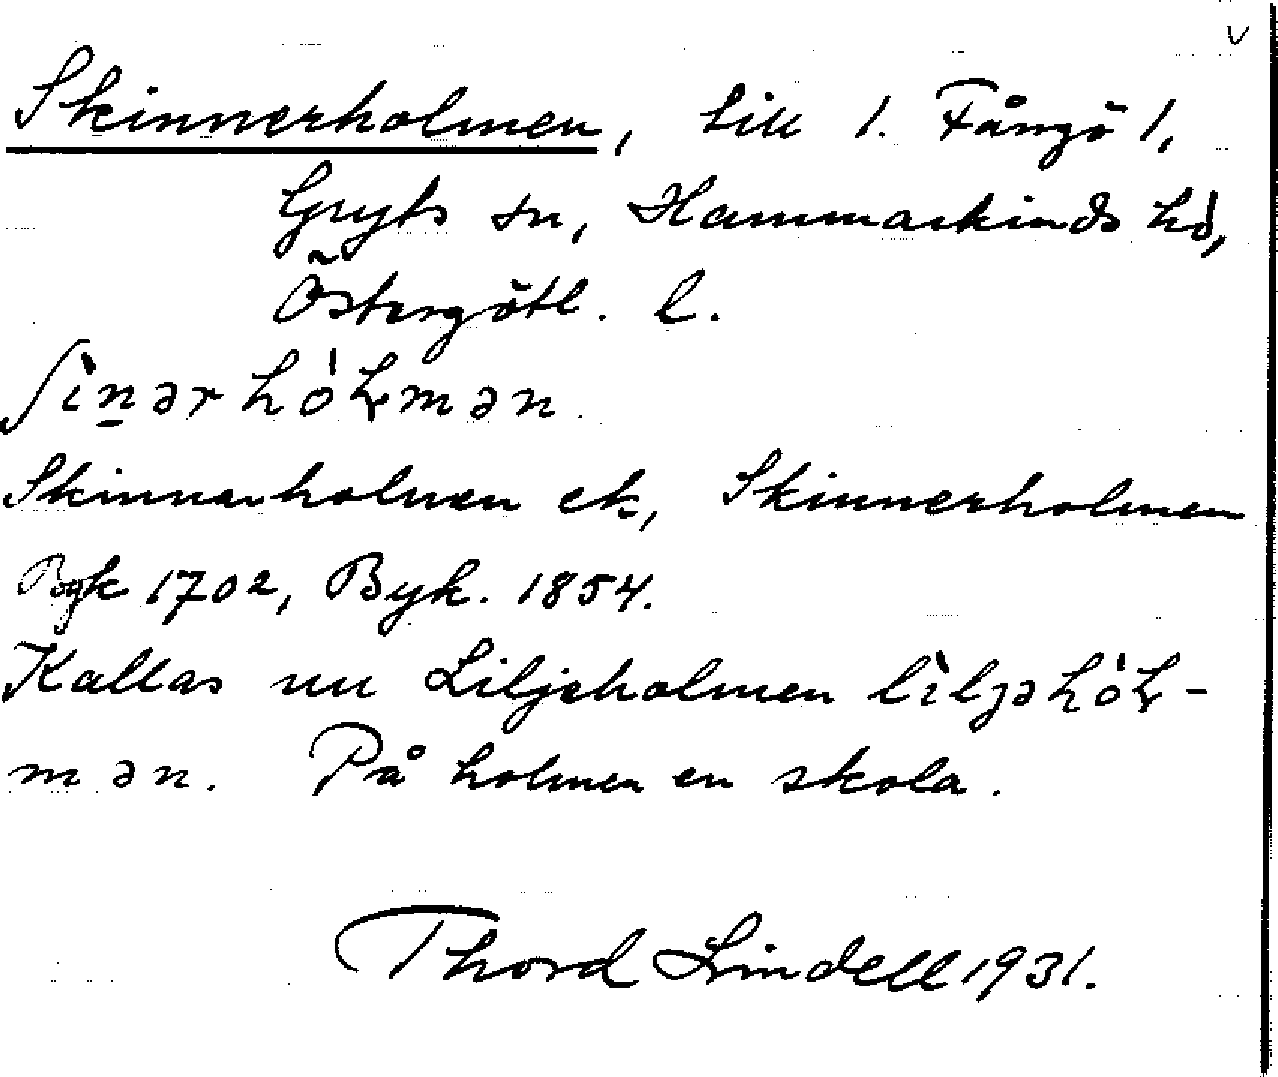 Skinnerholmen, till 1. Fångö 1,
Gryts sn, Hammarkinds hd,
Östergötl. l.
ʃìn̲ər hóɫmən.
Skinnarholmen ek, Skinnerholmen
Bgk 1702, Byk. 1854.
Kallas nu Liljeholmen lìljəhóɫ-
mən. På holmen en skola.
Thord Lindell 1931.